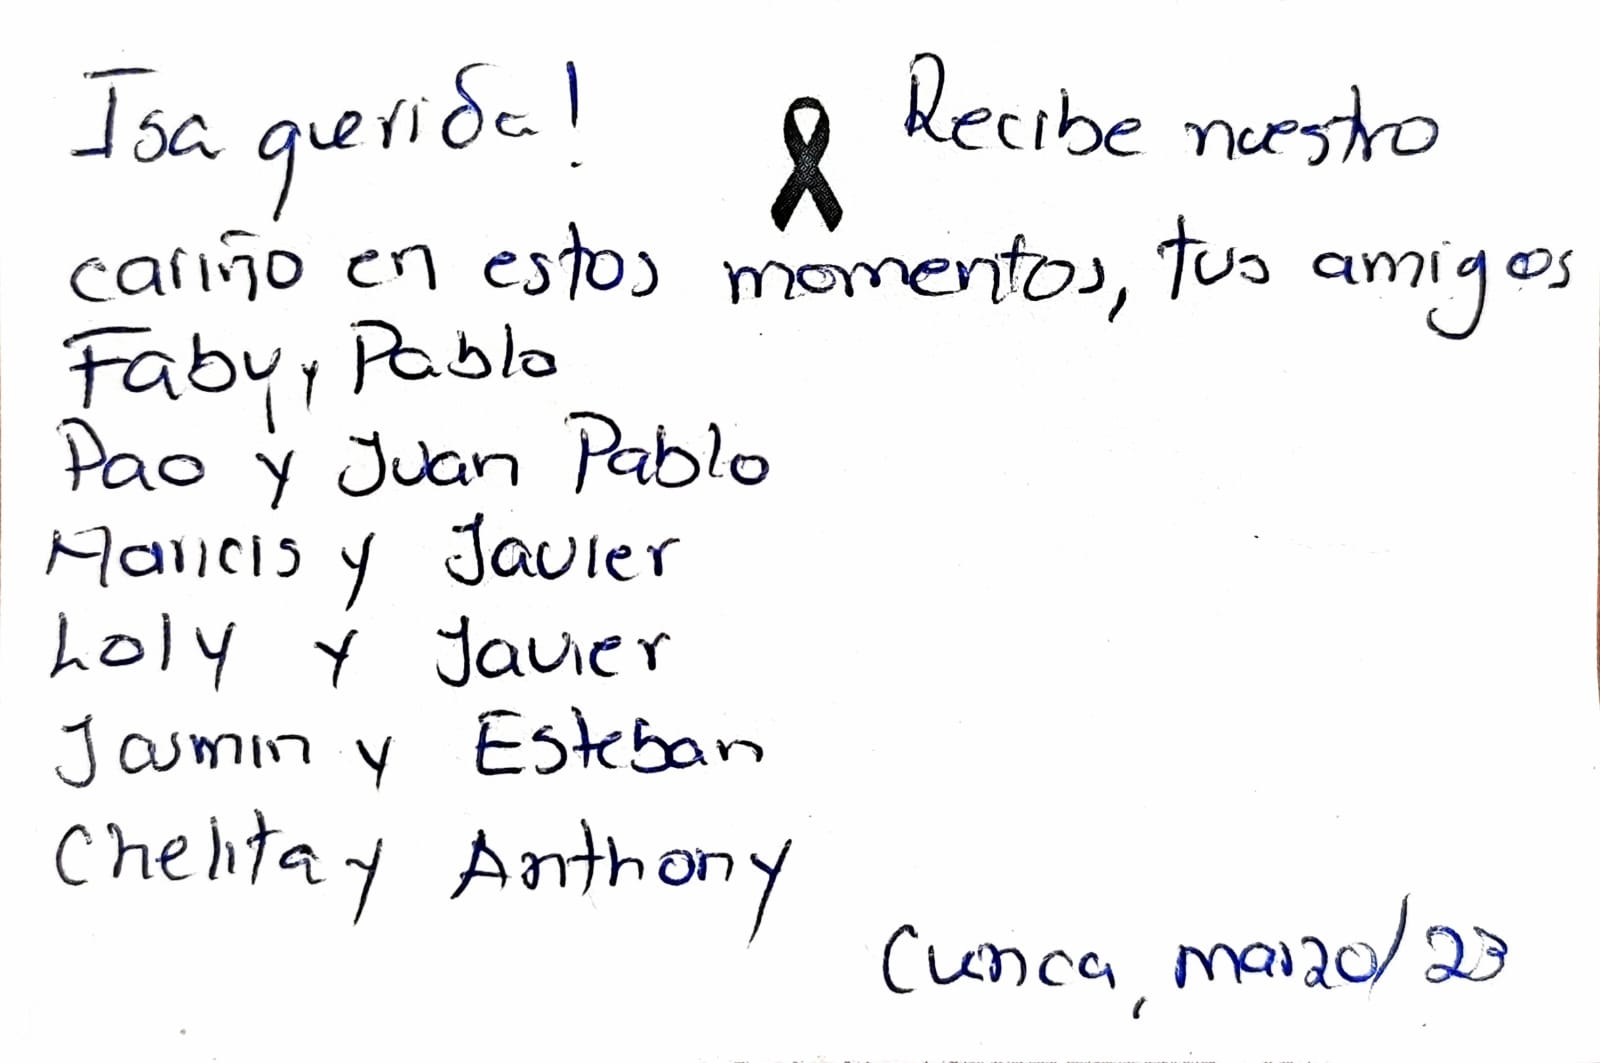 Isa querida! Recibe nuestro
cariño en estos momentos, tus amigos
Faby y Pablo
Pao y Juan Pablo
Maricis y Javier
Loly y Javier
Jasmin y Esteban
Chelita y Anthony
Cuenca, marzo/23